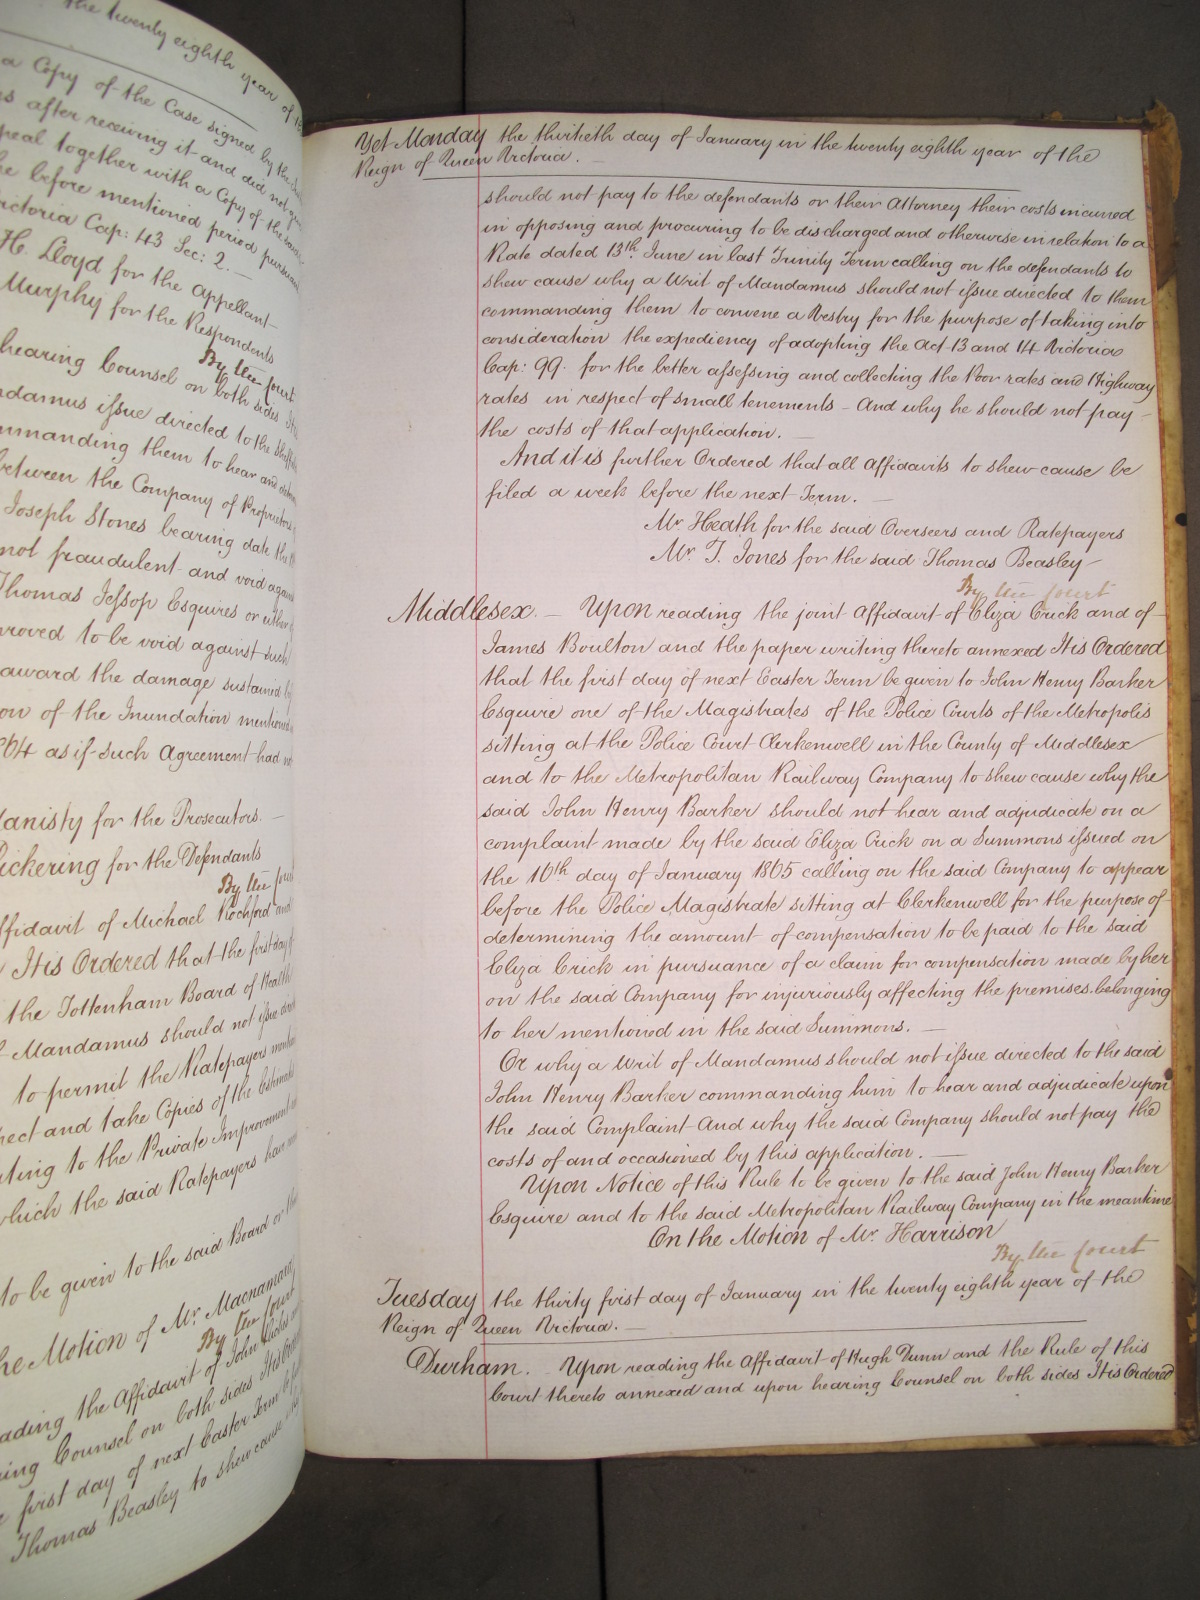 the twenty eighth year of
a Copy of the Case signed by the
after receiving it and did not
together with a Copy of the
before mentioned period pursuant
Victoria Cap: 43 Sec: 2. —
H. Lloyd for the Appellant
Murphy for the Respondents
By the Court
hearing Counsel on both sides It is
issue directed to the
commanding them to hear and
between the Company of Proprietors
Joseph Stones bearing date the
not fraudulent and void against
Thomas Jessop Esquires or either
proved to be void against such
award the damage sustained by
of the Inundation mentioned
as if such Agreement had
Manisty for the Prosecutors. —
Pickering for the Defendants
By the Court
Affidavit of Michael Rochford and
It is Ordered that the first day of
the Tottenham Board of Health
Mandamus should not issue
to permit the Ratepayers
and take Copies of the Estimates
to the Private Improvement
which the said Ratepayers have
to be given to the said Board or
the Motion of Mr. Macnamara
By the Court
reading the Affidavit of John
Counsel on both sides It is Ordered
first day of next Easter Term
Thomas Beasley to shew cause
Yet Monday the thirtieth day of January in the twenty eighth year of the
Reign of Queen Victoria. —
should not pay to the defendants or their Attorney their costs incurred
in opposing and procuring to be discharged and otherwise in relation to a
Rule dated 13th June in last Trinity Term calling on the defendants to
shew cause why a Writ of Mandamus should not issue directed to them
commanding them to convene a Vestry for the purpose of taking into
consideration the expediency of adopting the Act 13 and 14 Victoria
Cap: 99. for the better assessing and collecting the Poor rates and Highway
rates in respect of small tenements – And why he should not pay –
the costs of that application. —
And it is further Ordered that all Affidavits to shew cause be
filed a week before the next Term. —
Mr. Heath for the said Overseers and Ratepayers
Mr. T. Jones for the said Thomas Beasley
By the Court
Middlesex. — Upon reading the joint Affidavit of Eliza Crick and of
James Boulton and the paper writing thereto annexed It is Ordered
that the first day of next Easter Term be given to John Henry Barker
Esquire one of the Magistrates of the Police Courts of the Metropolis
sitting at the Police Court Clerkenwell in the County of Middlesex
and to the Metropolitan Railway Company to shew cause why the
said John Henry Barker should not hear and adjudicate on a
complaint made by the said Eliza Crick on a Summons issued on
the 16th day of January 1865 calling on the said Company to appear
before the Police Magistrate sitting at Clerkenwell for the purpose of
determining the amount of compensation to be paid to the said
Eliza Crick in pursuance of a claim for compensation made by her
on the said Company for injuriously affecting the premises belonging
to her mentioned in the said Summons. —
Or why a Writ of Mandamus should not issue directed to the said
John Henry Barker commanding him to hear and adjudicate upon
the said Complaint And why the said Company should not pay the
costs of and occasioned by this application. —
Upon Notice of this Rule to be given to the said John Henry Barker
Esquire and to the said Metropolitan Railway Company in the meantime
On the Motion of Mr. Harrison
By the Court
Tuesday the thirty first day of January in the twenty eighth year of the
Reign of Queen Victoria. —
Durham. Upon reading the Affidavit of Hugh Dunn and the Rule of this
Court thereto annexed and upon hearing Counsel on both sides It is Ordered